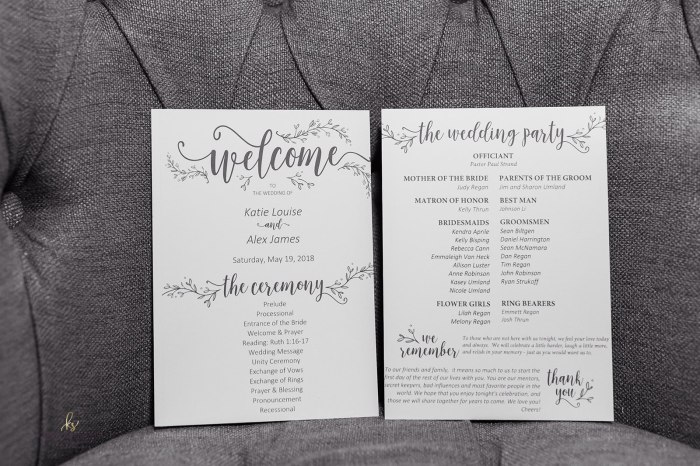 welcome
TO
THE WEDDING OF
Katie Louise
and
Alex James
Saturday, May 19, 2018
the ceremony
Prelude
Processional
Entrance of the Bride
Welcome & Prayer
Reading: Ruth 1:16-17
Wedding Message
Unity Ceremony
Exchange of Vows
Exchange of Rings
Prayer & Blessing
Pronouncement
Recessional
the wedding party
OFFICIANT
Pastor Paul Strand
MOTHER OF THE BRIDE
Judy Regan
PARENTS OF THE GROOM
Jim and Sharon Umland
MATRON OF HONOR
Kelly Thrun
BEST MAN
Johnson Li
BRIDESMAIDS
Kendra Aprile
Kelly Bisping
Rebecca Cann
Emmaleigh Van Heck
Allison Luster
Anne Robinson
Kasey Umland
Nicole Umland
GROOMSMEN
Sean Biltgen
Daniel Harrington
Sean McNamara
Dan Regan
Tim Regan
John Robinson
Ryan Strukoff
FLOWER GIRLS
Lilah Regan
Melony Regan
RING BEARERS
Emmett Regan
Josh Thrun
we
remember
To those who are not here with us tonight, we feel your love today
and always. "We will celebrate a little harder, laugh a little more,
and relish in your memory - just as you would want us to.
To our friends and family, it means so much to us to start the
first day of the rest of our lives with you. You are our mentors,
secret keepers, bad influences and most favorite people in the
world. We hope that you enjoy tonight's celebration, and
those we will share together for years to come. We love you!
Cheers!
thank
you
ks